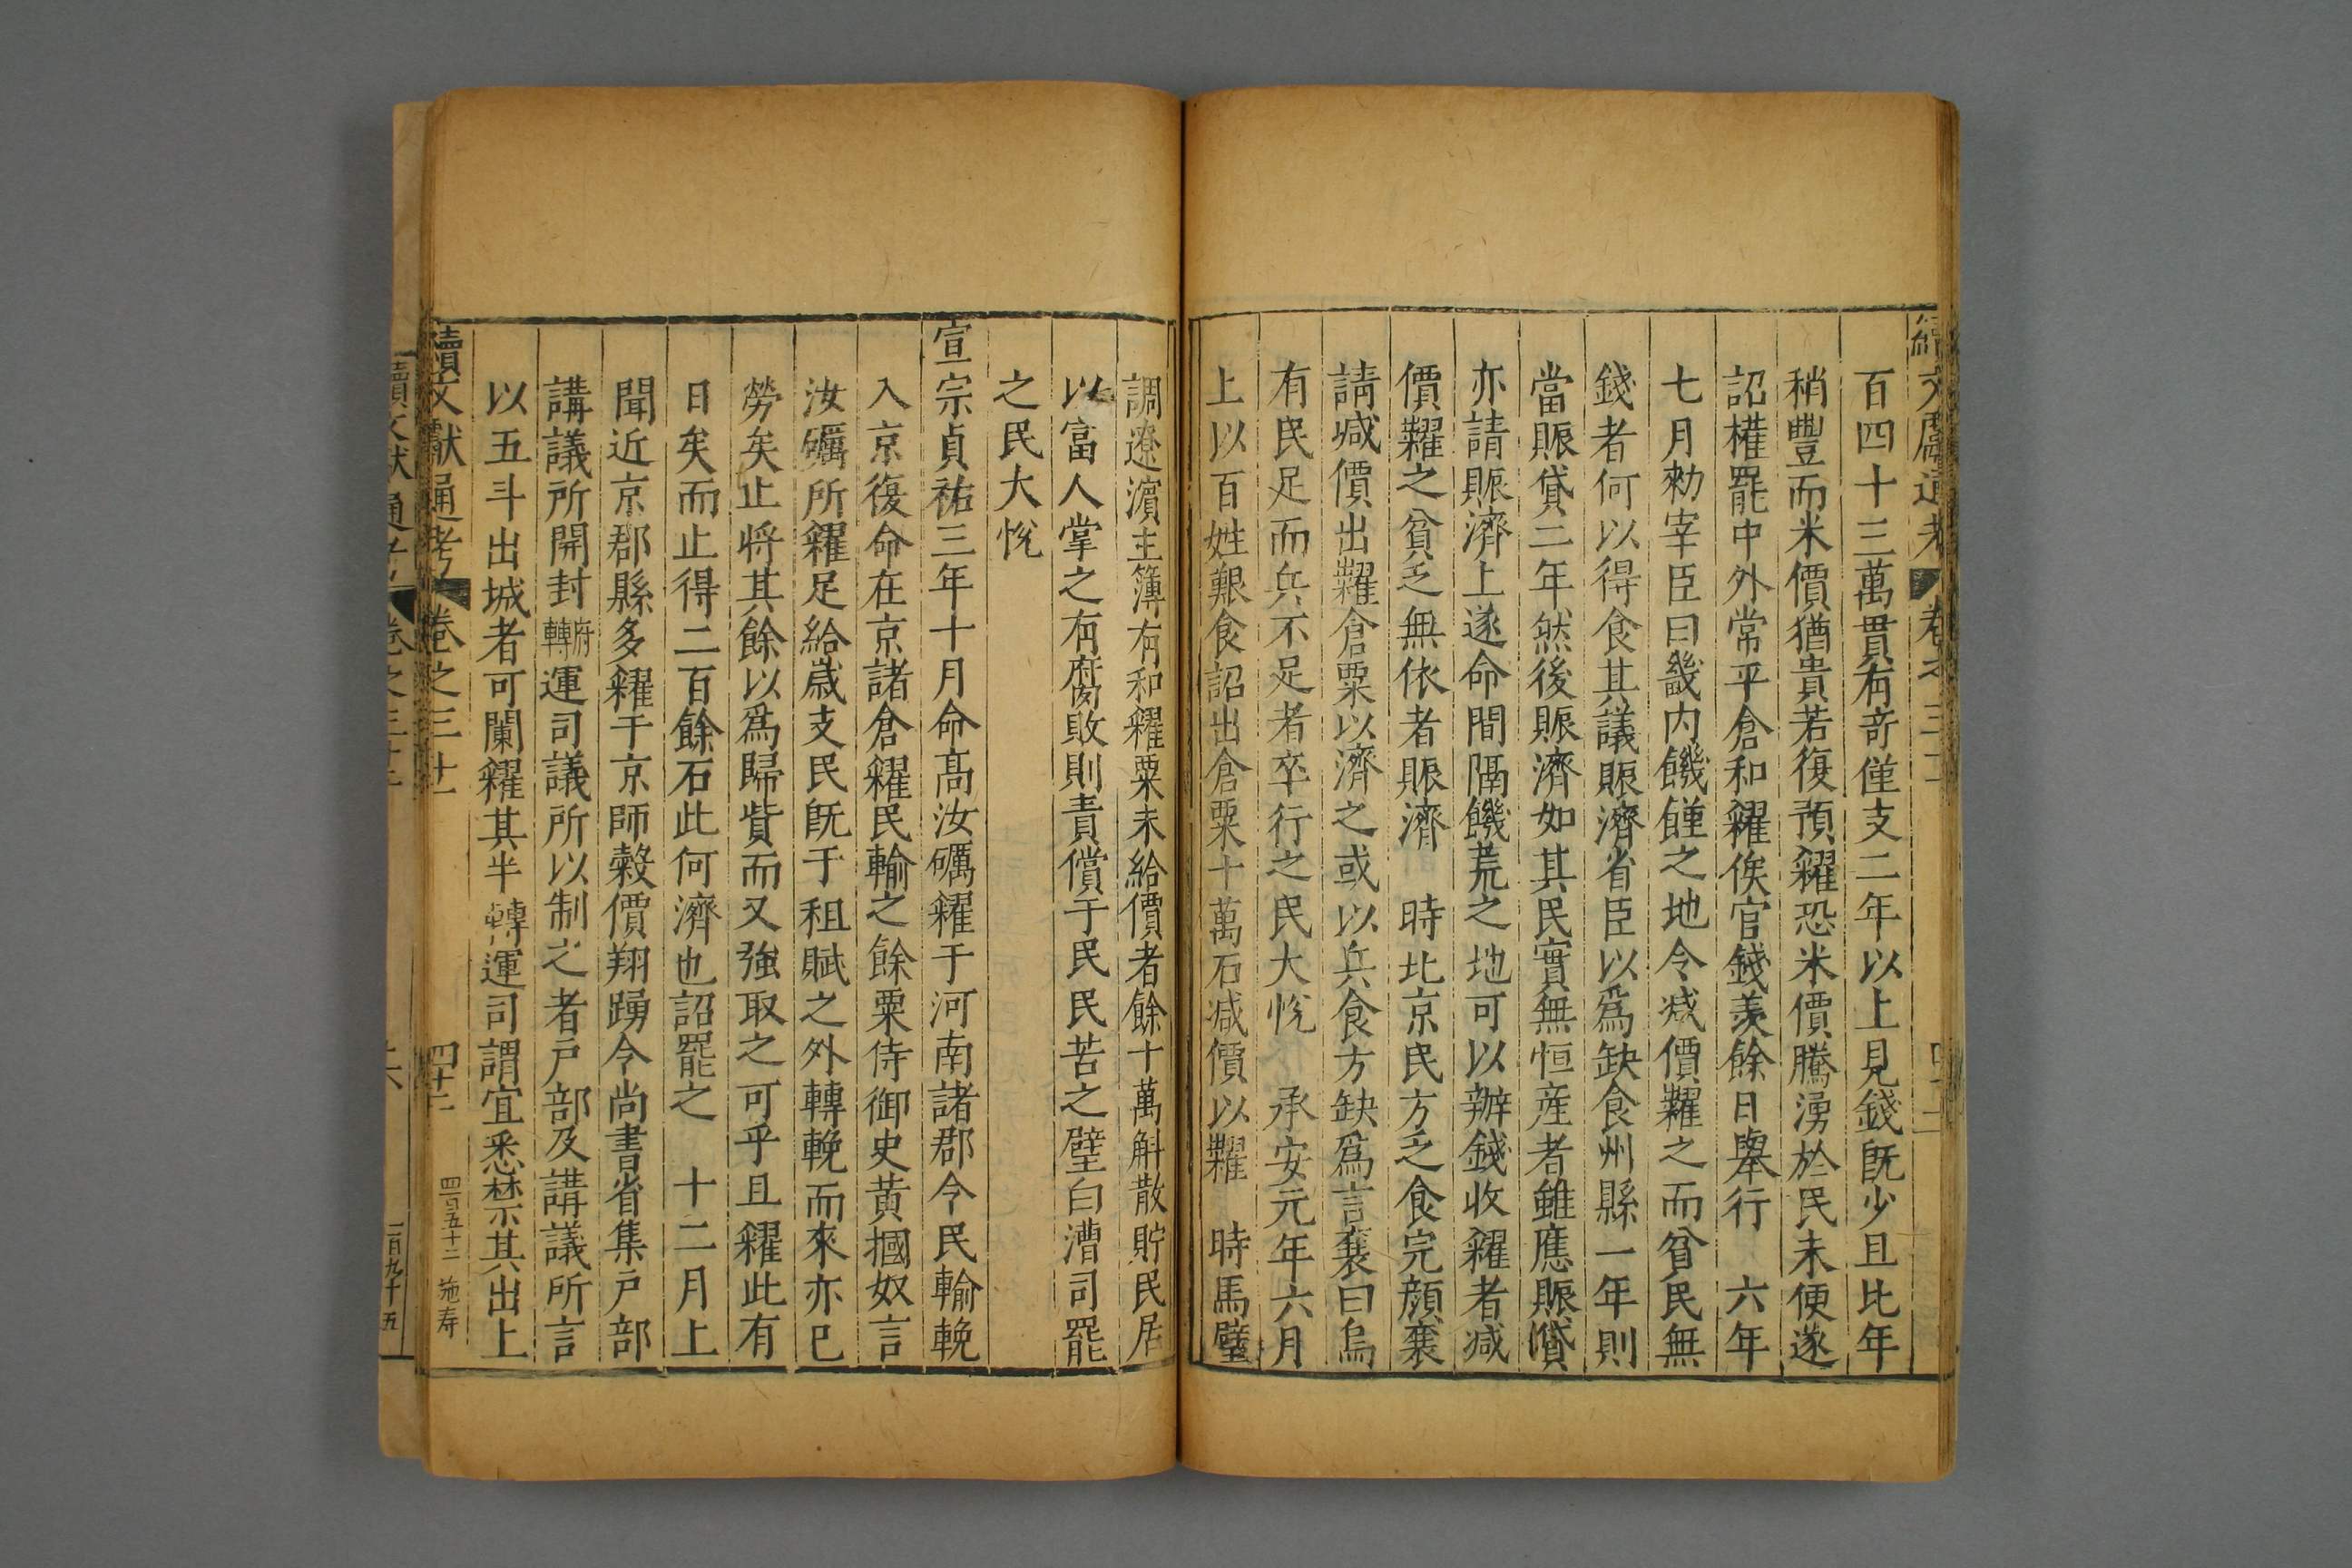 百四十三萬貫有竒僅支二年以上見錢既少且比年
稍豐而米價猶貴若復預糴恐米價騰湧於民未便遂
詔權罷中外常平倉和糴俟官錢羨餘日舉行　六年
七月勑宰臣曰畿内饑饉之地令减價糶之而貧民無
錢者何以得食其議賑濟省臣以爲缺食州縣一年則
當賑貸二年然後賑濟如其民實無恒産者雖應賑貸
亦請賑濟上遂命間隔饑荒之地可以辦錢收糴者减
價糶之貧乏無依者賑濟　時北京民方乏食完顔襄
請减價出糶倉粟以濟之或以兵食方缺爲言襄曰烏
有民足而兵不足者卒行之民大悅　承安元年六月
上以百姓艱食詔出倉粟十萬石减價以糶　時馬璧
調遼濱主簿有和糴粟未給價者餘十萬斛散貯民居
以富人掌之有腐敗則責償于民民苦之璧白漕司罷
之民大悅
宣宗貞祐三年十月命髙汝礪糴于河南諸郡令民輸輓
入京復命在京諸倉糴民輸之餘粟侍御史黄摑奴言
汝礪所糴足給歲支民既于租賦之外轉輓而來亦已
勞矣止將其餘以爲歸貲而又強取之可乎且糴此有
日矣而止得二百餘石此何濟也詔罷之　十二月上
聞近京郡縣多糴于京師糓價翔踴令尚書省集戸部
講議所開封府轉運司議所以制之者戸部及講議所言
以五斗出城者可闌糴其半轉運司謂宜悉禁其出上
續文獻通考　卷之三十二　四十二　四百五十二　施寿
續文獻通考　卷之三十二